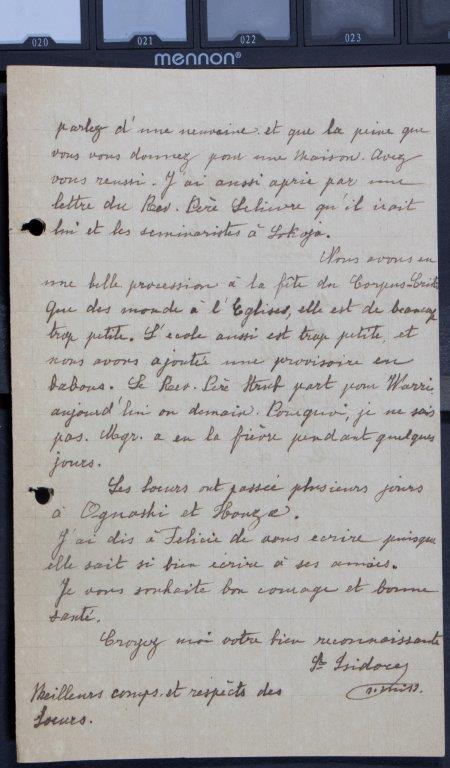 020 021 022 023
mennon®
parlez d'une neuvaine. et que la peine que
vous vous donnez pour une Maison. Avez
vous reussi. J'ai aussi apris par une
lettre du Rev. Père Lelievre qu'il irait
lui et les seminaristes à Lokoja.
Nous avons eu
une belle procession à la fête du Corpus-Cristi
Que des monde à l'Eglises, elle est de beaucoup
trop petite. L'ecole aussi est trop petite, et
nous avons ajoutée une provisoire en
babous. Le Rev. Père Strub part pour Warri
aujourd'hui ou demain. Pourquoi, je ne sais
pas. Mgr. a eu la fièvre pendant quelques
jours.
Les Soeurs ont passée plusieurs jours
à Ogwashi et
J'ai dis à Felicie de vous ecrire puisque
elle sait si bien écrire à ses amies.
Je vous souhaite bon courage et bonne
santé.
Croyez moi votre bien reconnaissante
Sr Isidore
Meilleurs comps. et respècts des
Soeurs.